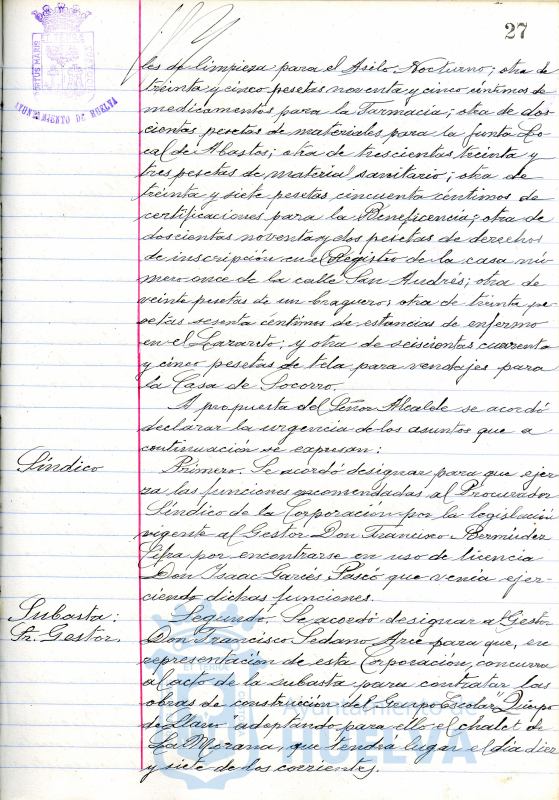 27
PORTUS MARIS
AYUNTAMIENTO DE HUELVA
les de limpieza para el Asilo Nocturno; otra de
treinta y cinco pesetas noventa y cinco céntimos de
medicamentos para la Farmacia; otra de dos-
cientas pesetas de materiales para la Junta Lo-
cal de Abastos; otra de trescientas treinta y
tres pesetas de material sanitario; otra de
treinta y siete pesetas cincuenta céntimos de
certificaciones para la Beneficencia; otra de
doscientas noventa y dos pesetas de derechos
de inscripción en el Registro de la casa nú-
mero once de la calle San Andrés; otra de
veinte pesetas de un braguero; otra de treinta pe-
setas sesenta céntimos de estancias de enfermo
en el Lazareto; y otra de seiscientas cuarenta
y cinco pesetas de tela para vendajes para
la Casa de Socorro.
A propuesta del Señor Alcalde se acordó
declarar la urgencia de los asuntos que a
continuación se expresan:
Síndico
Primero. Se acordó designar para que ejer-
za las funciones encomendadas al Procurador
Síndico de la Corporación por la legislación
vigente al Gestor Don Francisco Bermúdez
Cifra por encontrarse en uso de licencia
Don Isaac Garcés Pascó que venía ejer-
ciendo dichas funciones.
Subasta:
Sr. Gestor.
Segundo. Se acordó designar al Gestor
Don Francisco Sedano Arce para que, en
representación de esta Corporación, concurra
al acto de la subasta para contratar las
obras de construcción del Grupo Escolar "Queipo
de Llano" adoptando para ello el chalet de
La Morana, que tendrá lugar el día diez
y siete de los corrientes.
Ayuntamiento
HUELVA